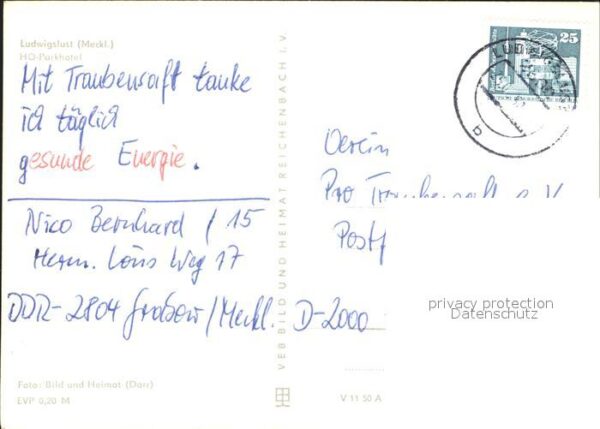 Ludwigslust (Meckl.)
HO-Parkhotel
Mit Traubensaft tanke
ich täglich
gesunde Energie.
Nico Bernhard / 15
Herm. Löns Weg 17
DDR-2804 Grabow/Meckl.
Foto: Bild und Heimat (Darr)
EVP 0,20 M
VEB BILD UND HEIMAT REICHENBACH I. V.
V 11 50 A
25
Verein
Pro Traubensaft e.V.
Postf
D-2000
privacy protection
Datenschutz